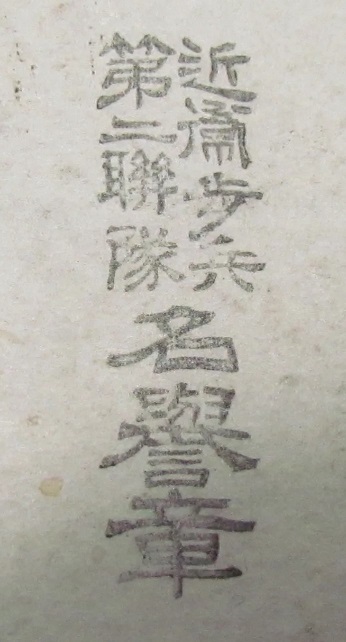 近衞歩兵
第二聯隊
名譽章